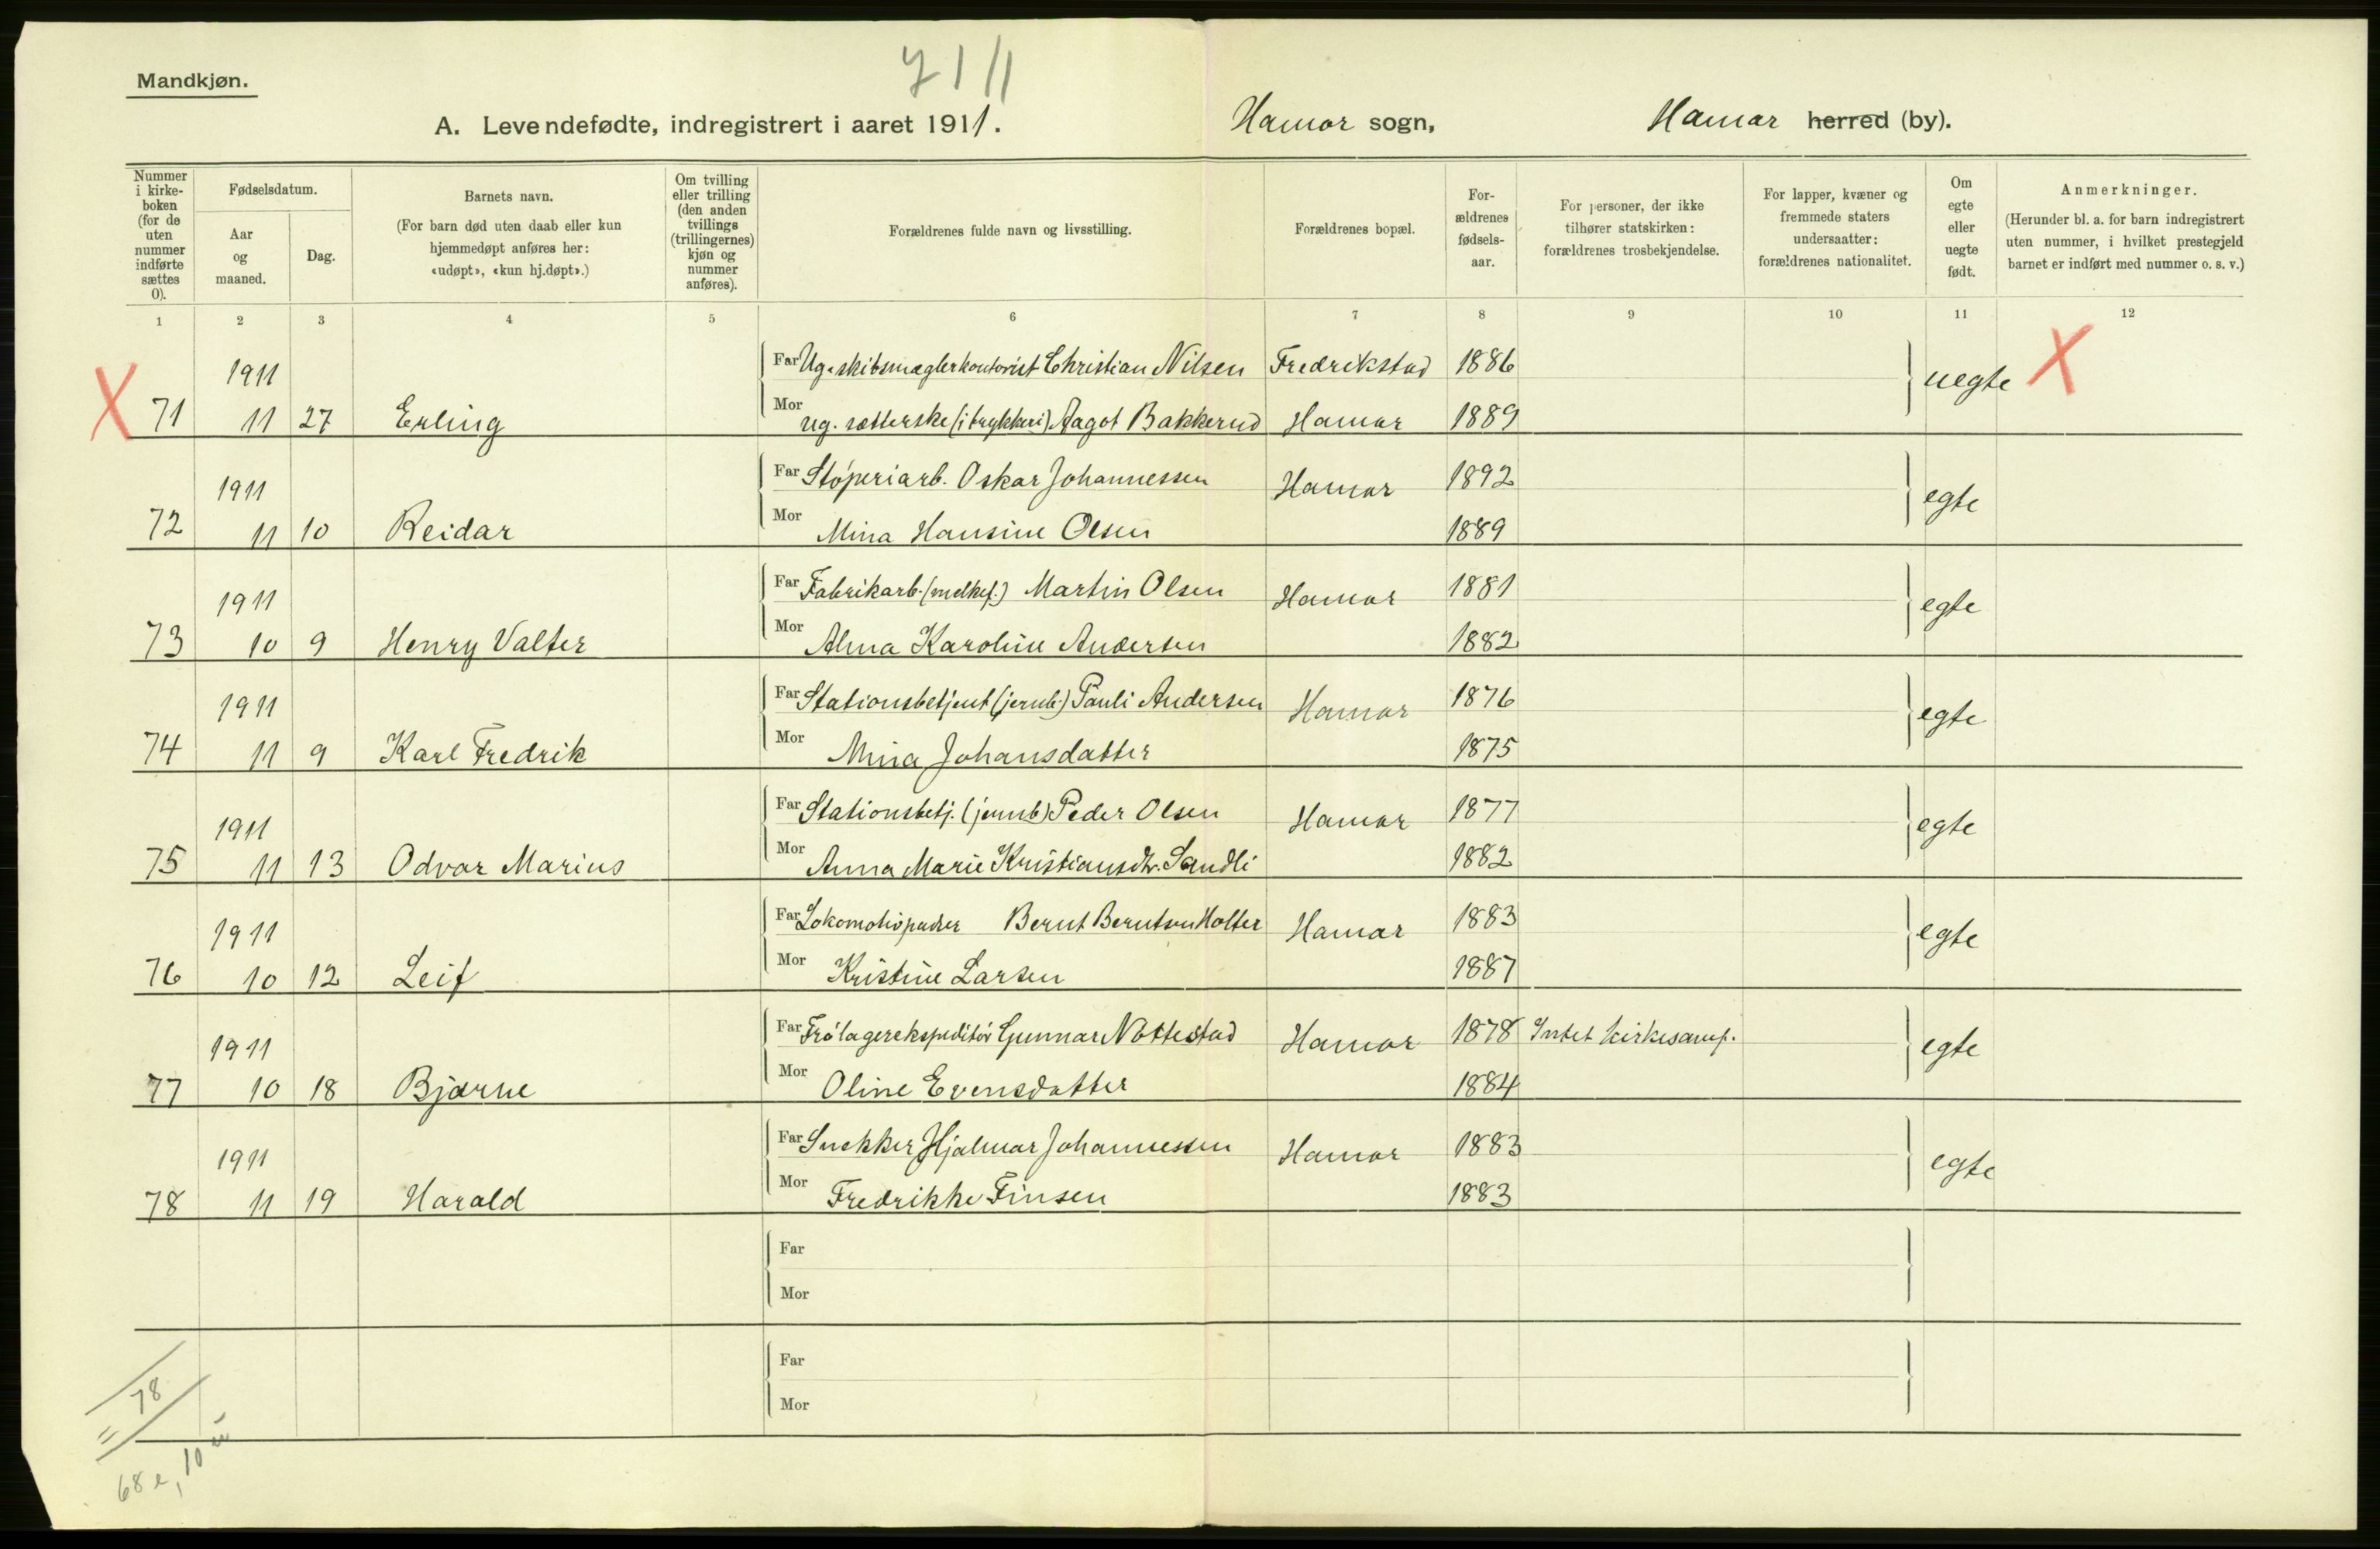 Mandkjøn.
711
A. Levendefødte, indregistrert i aaret 1911.
Hamar sogn,
Hamar herred (by).
Nummer i kirke-boken (for de uten nummer indførte sættes 0).
Fødselsdatum.
Aar og maaned.
Dag.
Barnets navn.
(For barn død uten daab eller kun hjemmedøpt anføres her: «udøpt», «kun hj.døpt».)
Om tvilling eller trilling (den anden tvillings (trillingernes) kjøn og nummer anføres).
Forældrenes fulde navn og livsstilling.
Forældrenes bopæl.
For-ældrenes fødsels-aar.
For personer, der ikke tilhører statskirken: forældrenes trosbekjendelse.
For lapper, kvæner og fremmede staters undersaatter: forældrenes nationalitet.
Om egte eller uegte født.
Anmerkninger.
(Herunder bl. a. for barn indregistrert uten nummer, i hvilket prestegjeld barnet er indført med nummer o. s. v.)
1 2 3 4 5 6 7 8 9 10 11 12
X 1911 Far Ug. skibsmæglerkontorist Christian Nilsen Fredrikstad 1886 uegte X
71 11 27 Erling Mor ug. sætterske (i trykkeri) Aagot Bakkerud Hamar 1889
1911 Far Støperiarb. Oskar Johannessen Hamar 1892 egte
72 11 10 Reidar Mor Mina Hansine Olsen 1889
1911 Far Fabrikarb. (melkef.) Martin Olsen Hamar 1881 egte
73 10 9 Henry Valter Mor Alma Karoline Andersen 1882
1911 Far Stationsbetjent (jernb.) Pauli Andersen Hamar 1876 egte
74 11 9 Karl Fredrik Mor Mina Johansdatter 1875
1911 Far Stationsbetj. (jernb) Peder Olsen Hamar 1877 egte
75 11 13 Odvar Marius Mor Anna Marie Kristiansdtr. Sandli 1882
1911 Far Lokomotivpudser Bernt Berntsen Holter Hamar 1883 egte
76 10 12 Leif Mor Kristine Larsen 1887
1911 Far Frølagerekspeditør Gunnar Nøttestad Hamar 1878 Intet kirkesamf. egte
77 10 18 Bjarne Mor Oline Evensdatter 1884
1911 Far Snekker Hjalmar Johannessen Hamar 1883 egte
78 11 19 Harald Mor Fredrikke Finsen 1883
Far
Mor
Far
Mor
= 78
68 e, 10 u